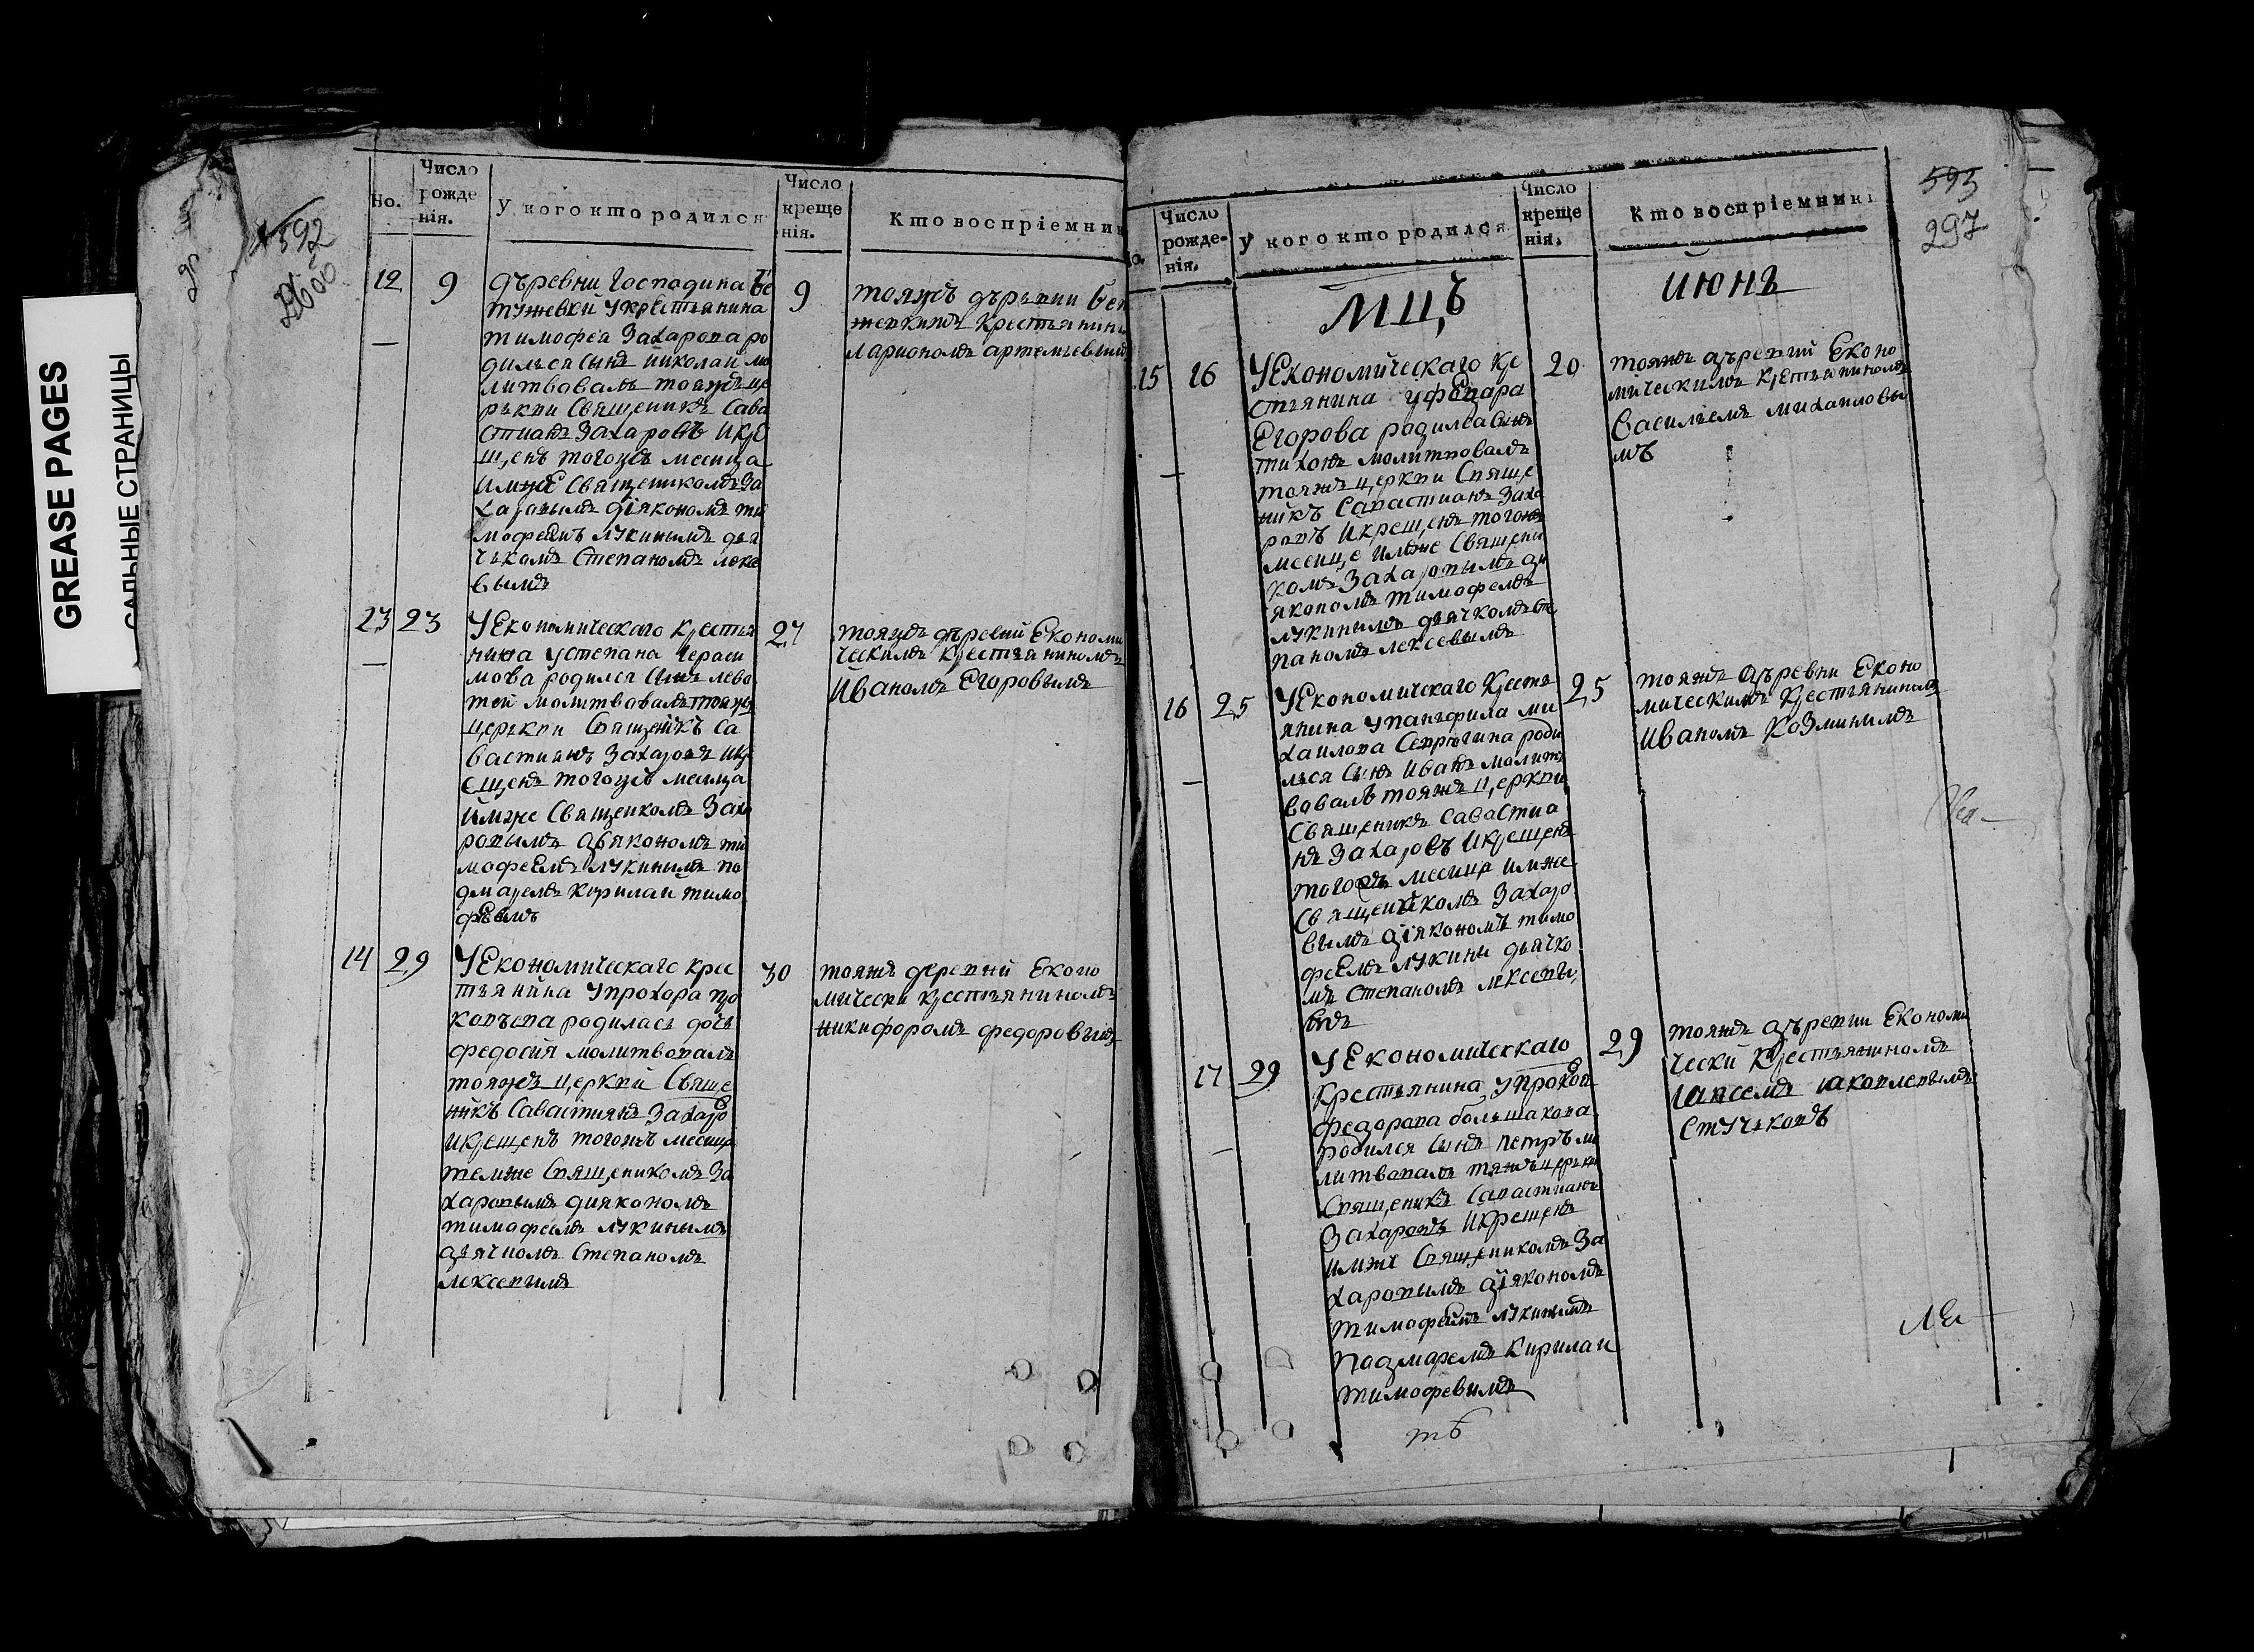 GREASE PAGES
САЛЬНЫЕ СТРАНИЦЫ
592
Но.
Число рожде нія.
У кого кто родился
Число креще нія.
Кто воспріемник
12
9
дъревни Господина Бе
тужевкй укрестьянина
тимофея Захарова ро
дилься сынъ николаи мо
литвовалъ тояждъ це
ръкви священикъ Сава
стианъ Захаровъ икре
щенъ тогождъ месяца
имже священикомъ За
харовымъ діякономъ ти
мофеемъ лукинымъ дья
чькомъ Степаномъ лексе
вымъ
9
тояждъ дъревни бет
жевкимъ крестьянины
лариономъ артемьевым
13
23
УЕкономическаго крестья
нина устепана гераси
мова родился сынъ лево
тей молитвовалъ тояжъ
церькви священикъ Са
вастиянъ Захаровъ икр
ещенъ тогождъ месяца
имже священикомъ Заха
ровымъ дьякономъ ти
мофеемъ лукинымъ по
дмаремъ Кирилаи тимо
феемъ
27
тояждъ дъревнй Економи
ческимъ крестьяниномъ
Иваномъ Егоровымъ
14
29
УЕкономическаго крес
тьянйна упрохора про
копьева родилась дочь
федосия молитвовалъ
тояждъ церквй Свяще
никъ Савастиянъ Захаро
икрещенъ тогожъ месяца
темже Священикомъ За
харовымъ дияконом
тимофеемъ лукинымъ
дьячкомъ Степаномъ
лексевымъ
30
тояжъ деревнй Еконо
мически крестьяниномъ
никифоромъ федоровымъ
593
297
Число рожде- нія.
У кого кто родился
Число креще нія.
Кто воспріемникі
мц,ъ
июнъ
15
16
УЕкономйческаго кре
стьянина
Егорова родилса сынъ
тихонъ молитвовалъ
тояжъ церкви Свяще
никъ Савастианъ Заха
ровъ Икрещенъ тогожъ
месяце имже Священи
комъ Захаровымъ ди
якономъ тимофеемъ
лукинымъ дьячкомъ Сте
паномъ лексевымъ
20
тояжъ дъревнй Еконо
мическимъ крестьяниномъ
Васильемъ михаиловы
мъ
16
25
УЕкономическаго Кресть
янина упангфила ми
хаилова Севрюгина роди
лься Сынъ Иванъ молит
вовалъ тояжъ церкви
Священикъ Савастиа
нъ Захаровъ Икрещенъ
тогождъ месяца имже
Священикомъ Захаро
вымъ діякономъ тимо
феемъ лукины дьячко
мъ Степаномъ лексевы
25
тояжъ дъревни Еконо
мическимъ Крестьяниномъ
Иваномъ Козминымъ
17
29
УЕкономическаго
Крестьянина упрокоп
федорова большакова
родился сынъ петръ мо
литвовалъ тяжъ церькви
Священикъ Савастианъ
Захаровъ Икрещенъ
имже Священикомъ За
харовымъ діякономъ
тимофеемъ лукинымъ
падмаремъ Кирилаи
тимофевимъ
29
тояжъ дъревни Економи
чески Крестьяниномъ
яковлевымъ
Стучковъ